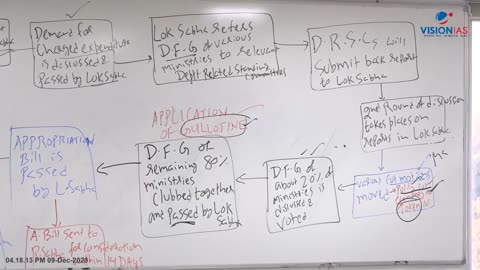 VISIONIAS
Demand for
Charged expenditure
is discussed &
Passed by Lok Sabha
Lok Sabha Refers
D.F.G of various
ministries to relevant
Dept Related Standing
Committees
D.R.S.Cs will
Submit back report
to Lok Sabha
2nd Round of discussion
takes place on
reports in Lok Sabha
various
moved
D.F.G of
about 20% of
ministries is
discussed &
voted
APPLICATION
OF GULLOTINE
D.F.G of
remaining 80%
ministries
clubbed together
and Passed by Lok
Sabha
APPROPRIATION
Bill is
Passed
by L.Sabha
A Bill sent to
R.Sabha for consideration
14 Days
04.18.13 PM 09-Dec-2020